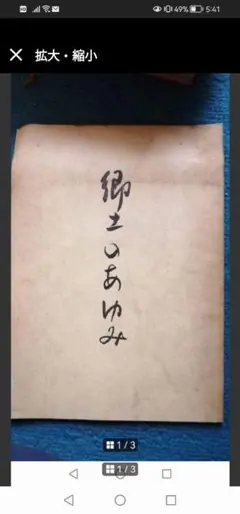 49% 5:41
拡大・縮小
郷土のあゆみ
1/3
1/3